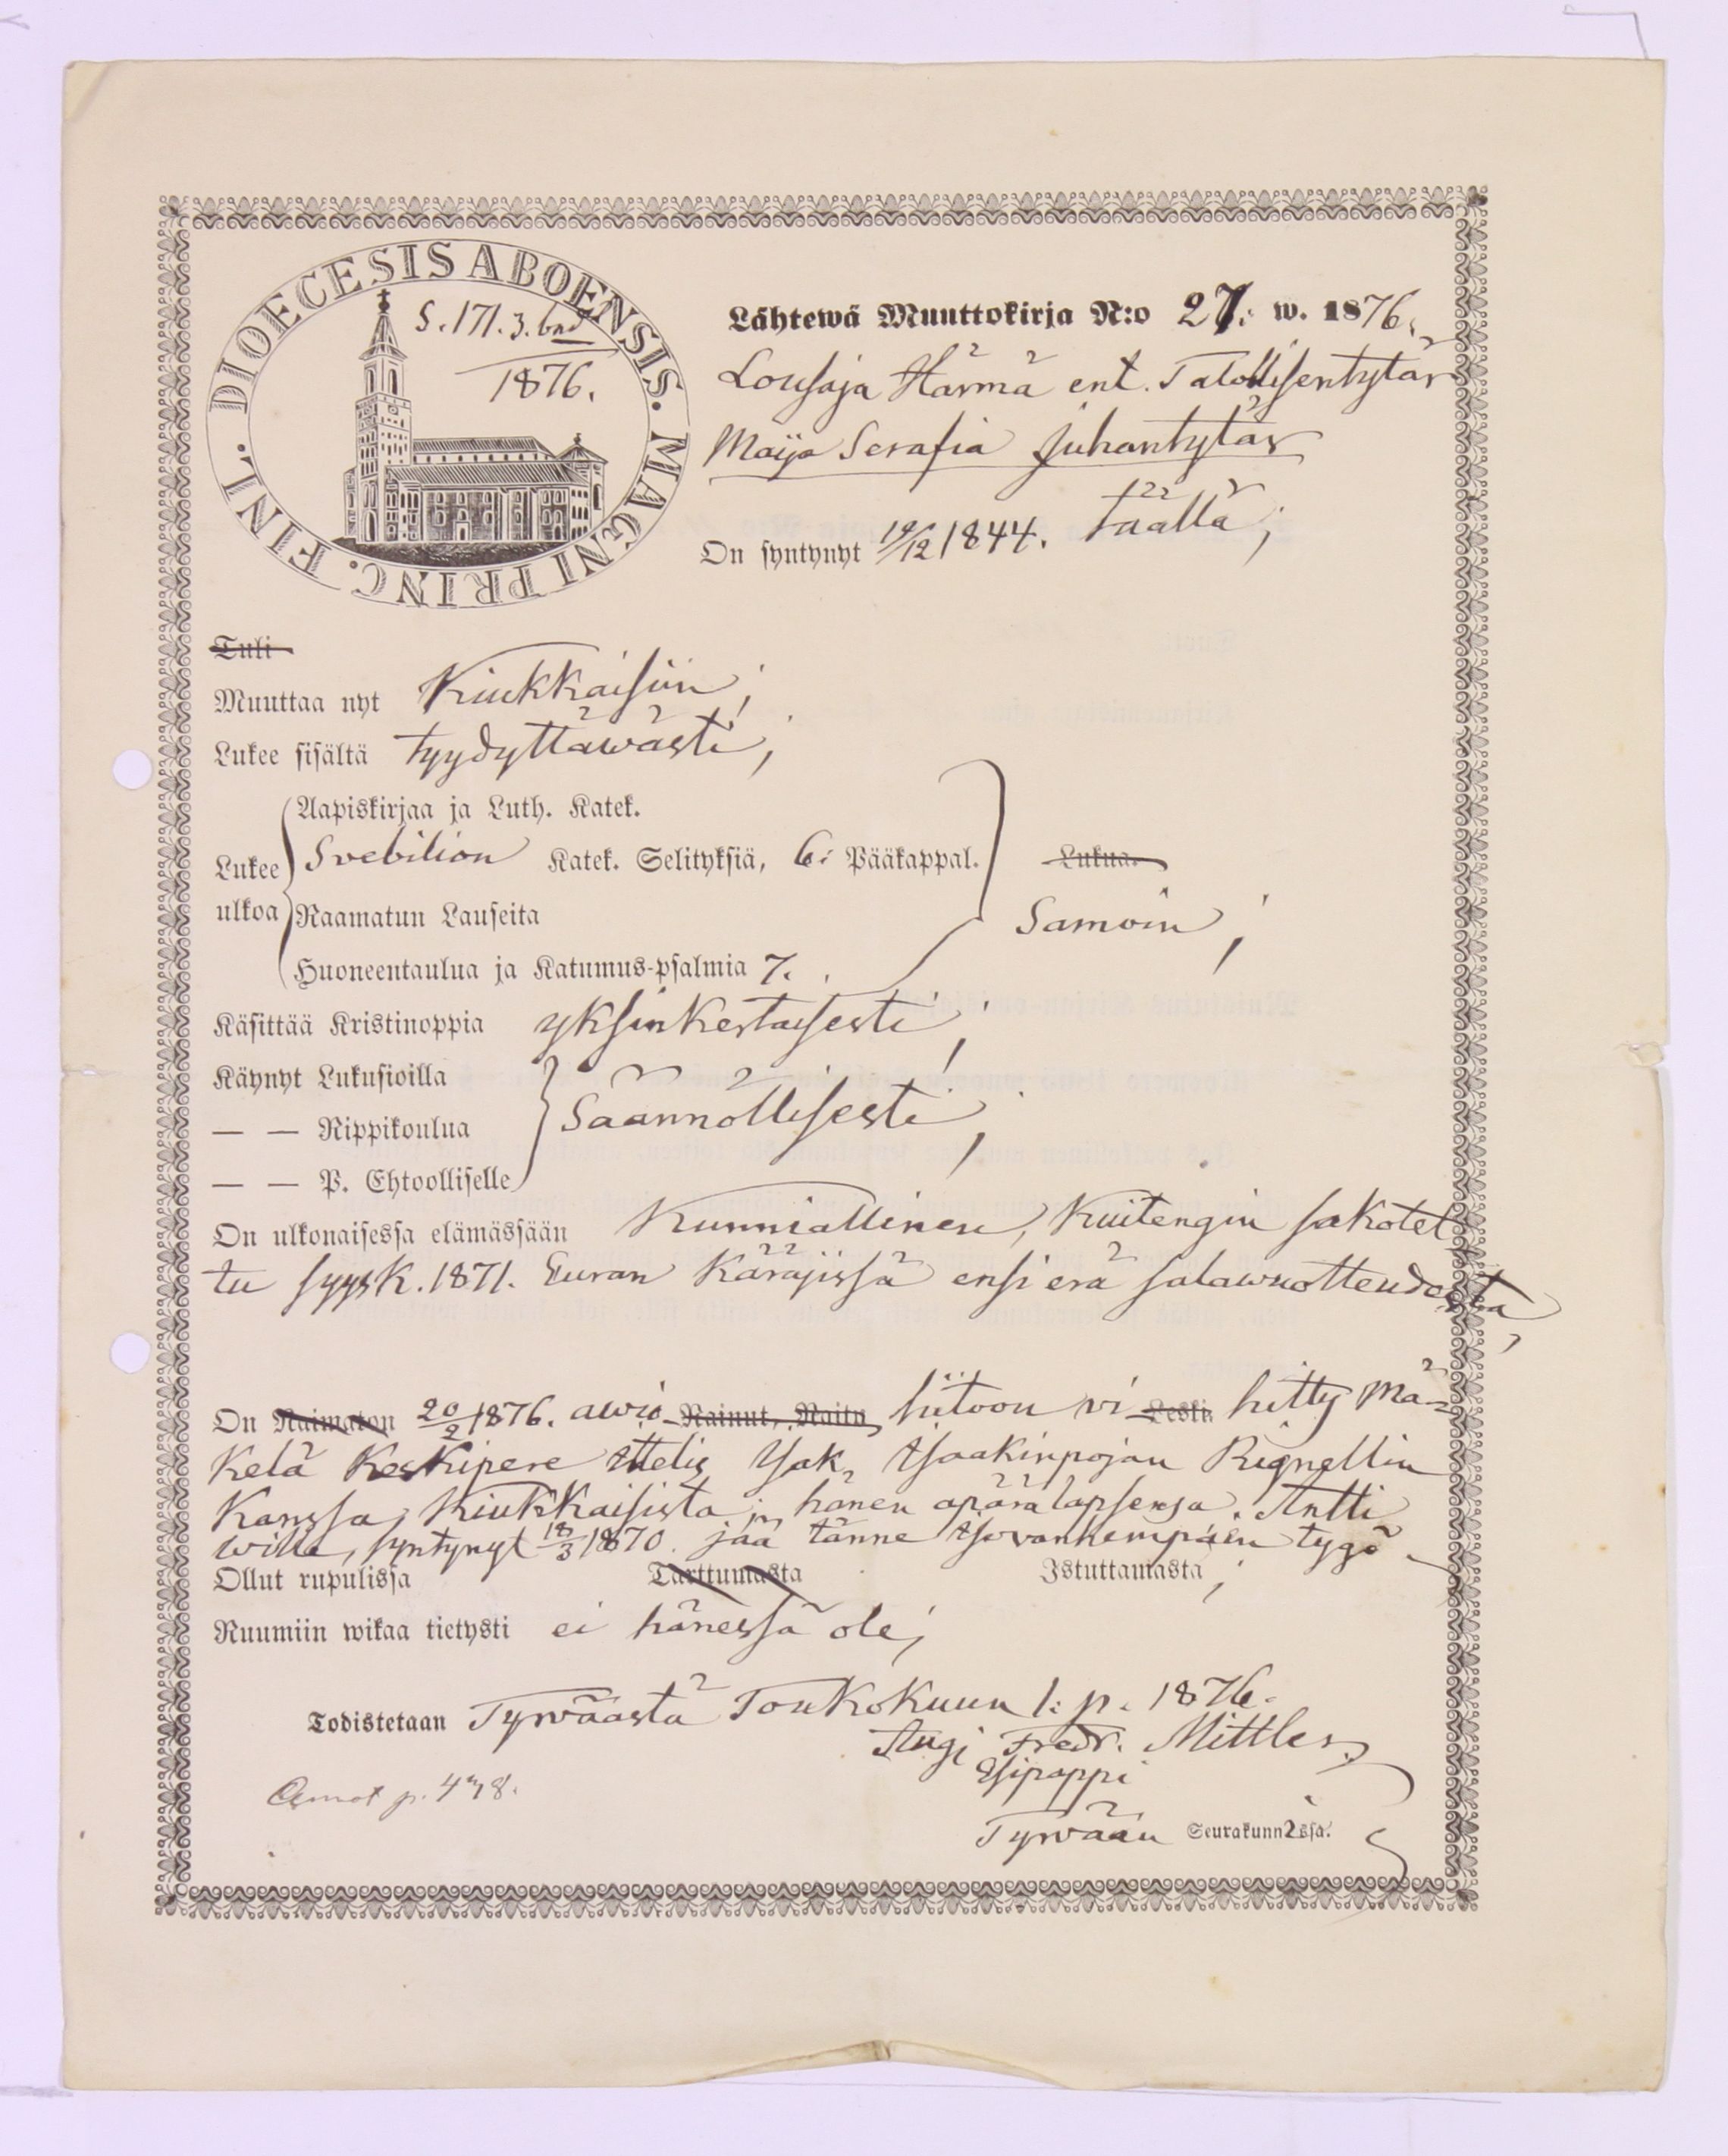 DIOECESIS ABOENSIS. MAGNI PRINC. FINL.
S. 171. 3. bnd
1876.
Lähtewä Muuttokirja N:o 27. w. 1876.
Lousaja Härmä ent. Talollisentytär
Maija Serafia Juhantytär
On syntynyt 19/12 1844. täällä;
Tuli
Muuttaa nyt Kiukkaisiin;
Lukee sisältä tyydyttäwästi;
Aapiskirjaa ja Luth. Katek.
Lukee Svebilion Katek. Selityksiä, 6: Pääkappal. Lukua.
ulkoa Raamatun Lauseita Samoin;
Huoneentaulua ja Katumus-psalmia 7.
Käsittää Kristinoppia yksinkertaisesti;
Käynyt Lukusioilla
— — Rippikoulua Säännöllisesti;
— — P. Ehtoolliselle
On ulkonaisessa elämässään Kunniallinen, Kuitengin sakotet
tu syysk. 1871. Euran Käräjissä ensi erä salawuoteudesta,
On Naimaton 20/2 1876. awio Nainut, Naitu hiitoon vi Leski hitty Mä-
kelä Keskipere Isak Isaakinpojan Rignellin
Kanssa Kiukkaisista ja hänen äpärälapsensa Antti
Wille, syntynyt 18/3 1870. jää tänne Isovanhempäin tygö
Ollut rupulissa Tarttumasta Istuttamasta;
Ruumiin wikaa tietysti ei hänessä ole;
Todistetaan Tyrväästä Toukokuun 1: p. 1876.
Augi Fredr. Mittler
Esipappi
p. 478.
Tyrvään Seurakunnassa.